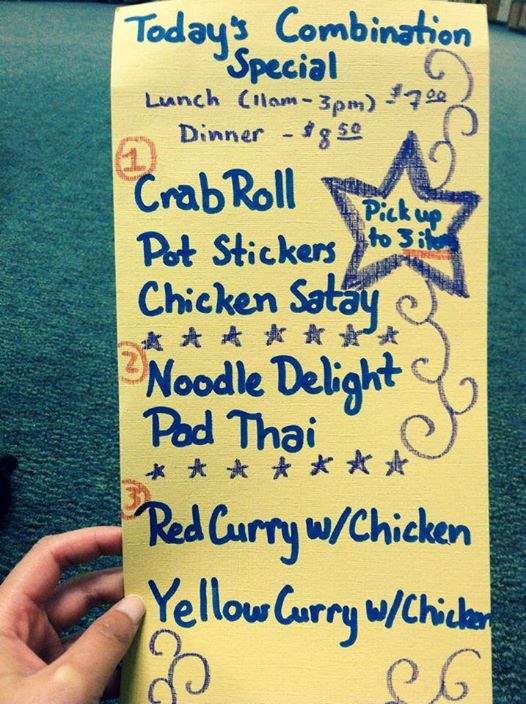 Today's Combination
Special
Lunch (11am-3pm) -$7.00
Dinner - $8.50
1
Crab Roll
Pick up
to 3
Pot Stickers
Chicken Satay
2
Noodle Delight
Pad Thai
3
Red Curry w/Chicken
Yellow Curry w/Chicken